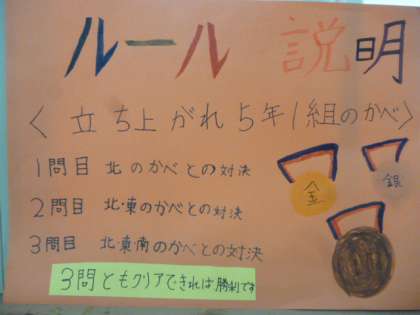 ルール 説明
＜立ち上がれ5年1組のかべ＞
1問目 北のかべとの対決
2問目 北・東のかべとの対決
3問目 北東南のかべとの対決
3問ともクリアできれば勝利です
金
銀